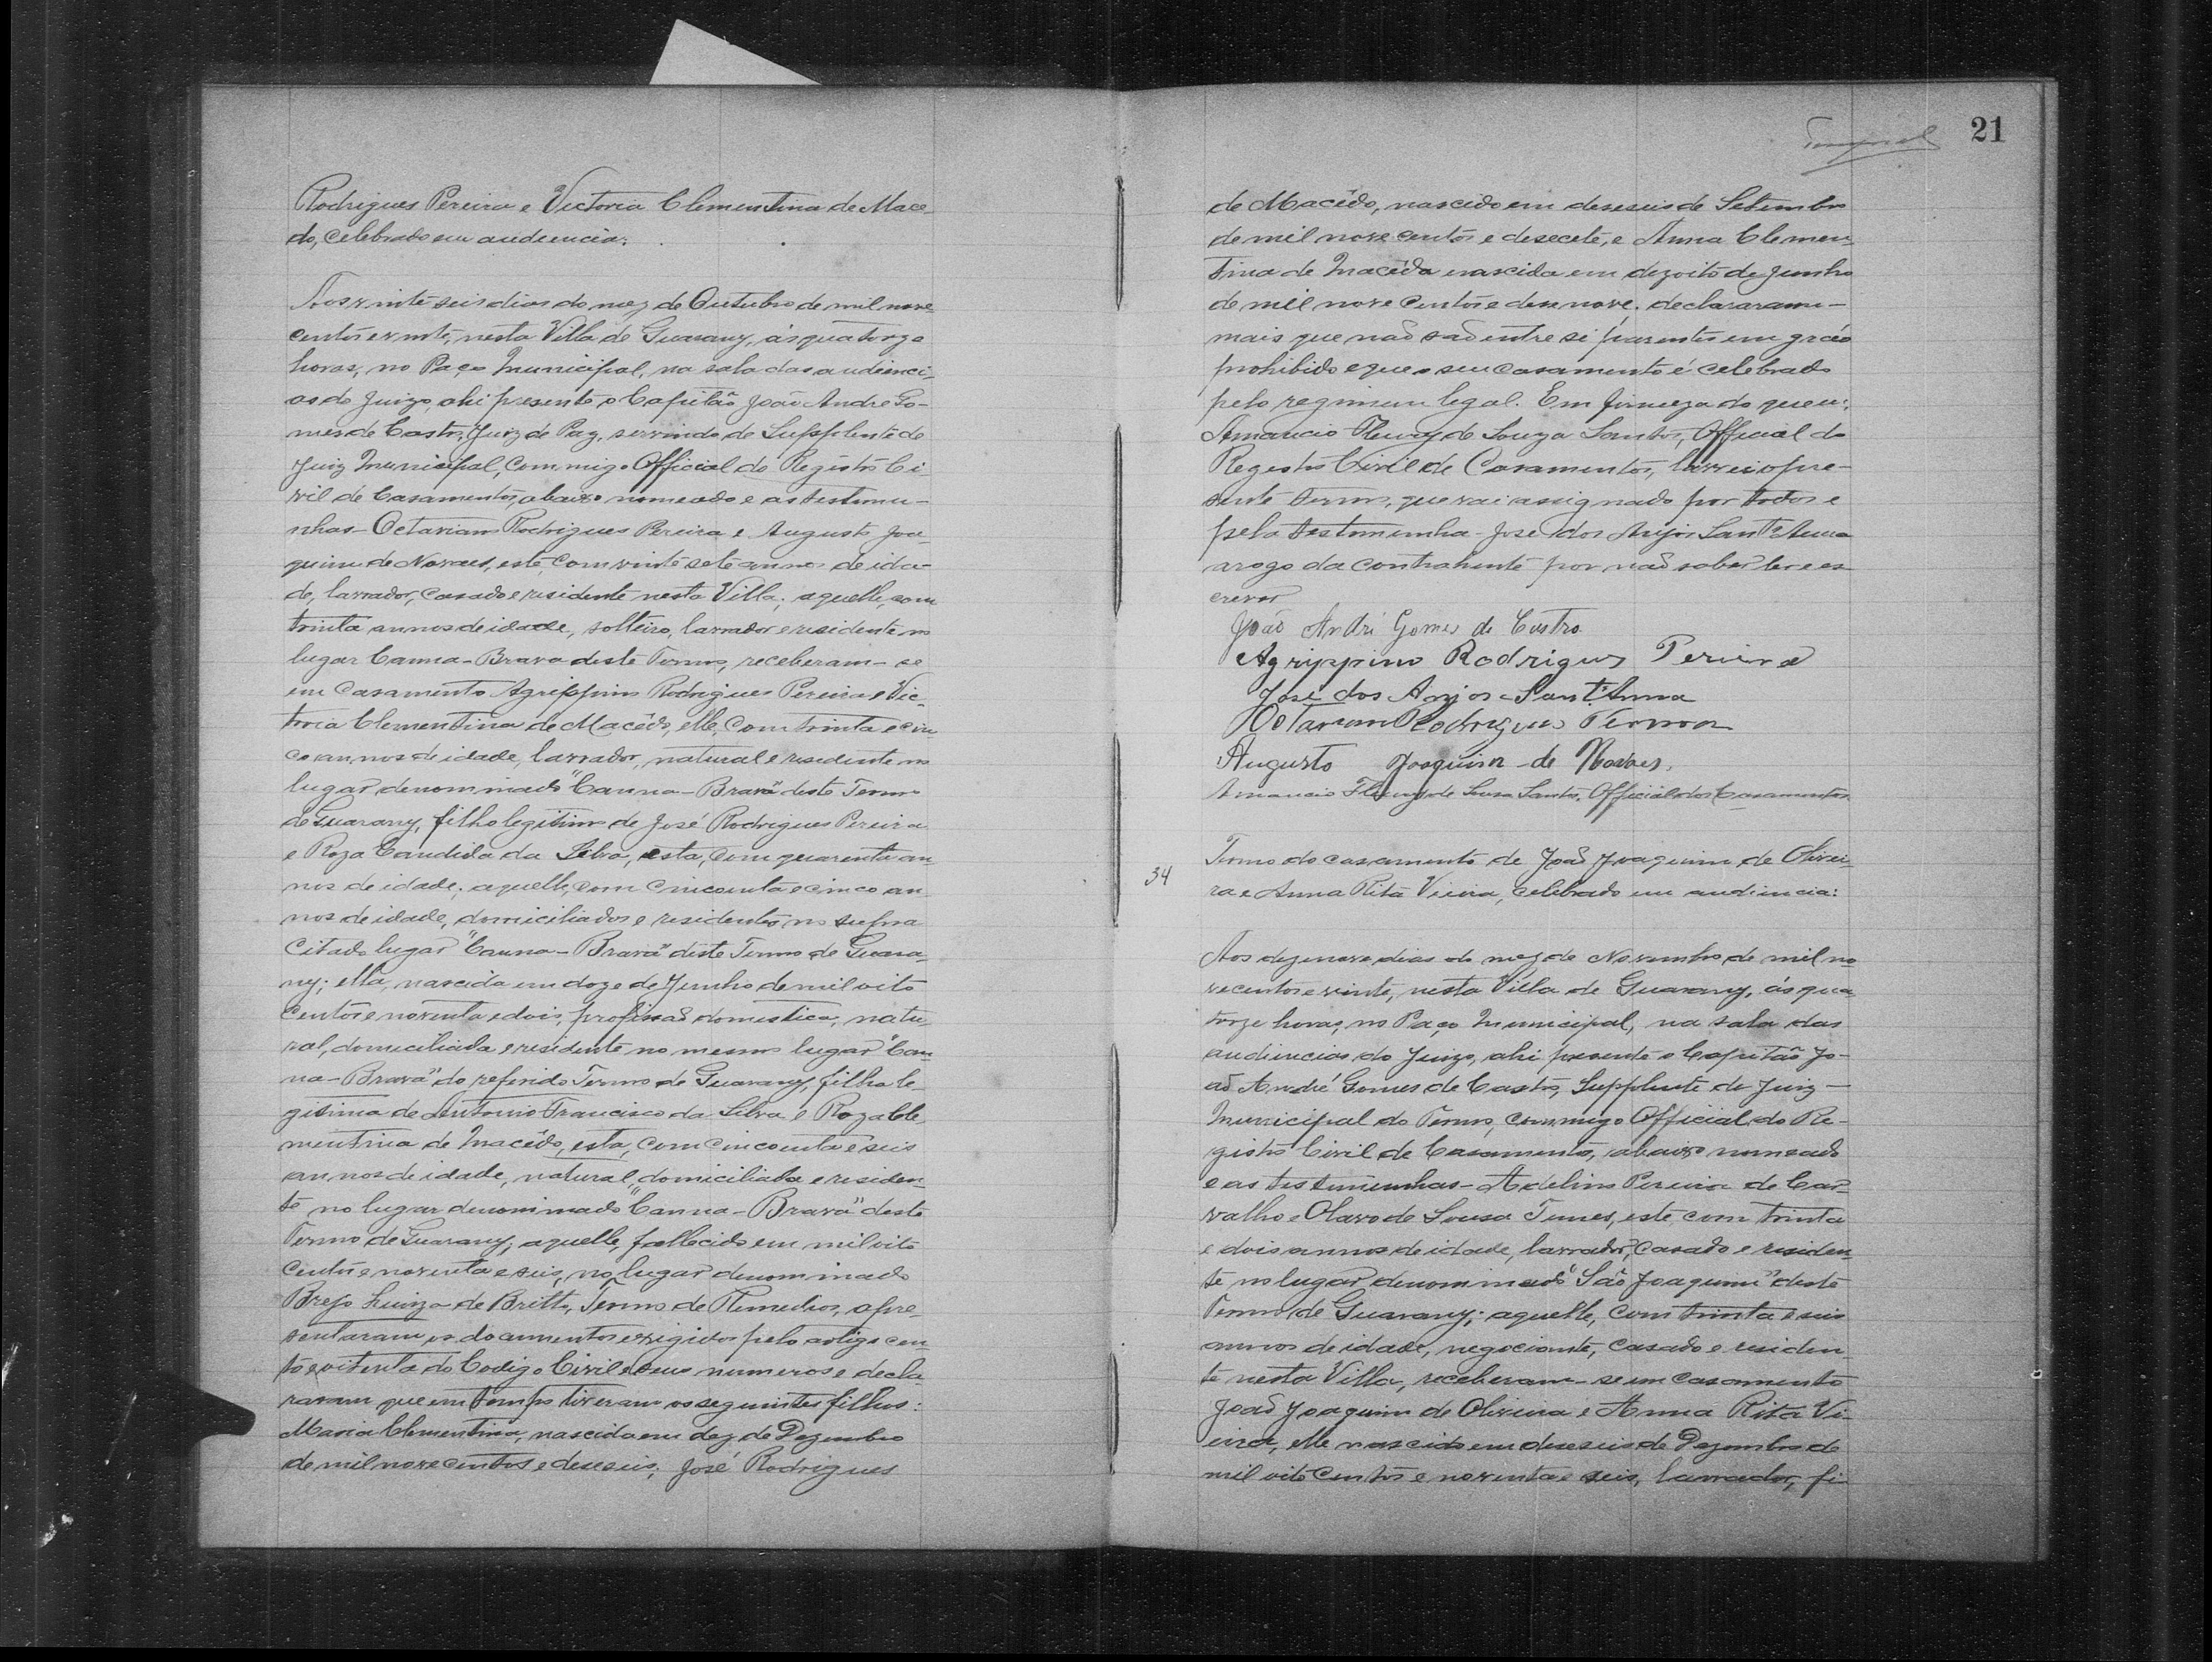 Rodrigues Pereira e Victoria Clementina de Mace-
do, celebrado em audiencia:
Aos vinte seis dias do mez de Outubro de mil nove
centos e vinte, nesta Villa de Guarany, ás quatorze
horas, no Paço Municipal, na sala das audienci-
as do Juizo, ahi presente o Capitão João André Go-
mes de Castro, Juiz de Paz, servindo de Supplente de
Juiz Municipal, commigo Official do Registro Ci-
vil de Casamentos, abaixo nomeado e as testemu-
nhas - Octaviano Rodrigues Pereira e Augusto Joa-
quim de Novaes, este, com vinte sete annos de ida-
de, lavrador, casado e residente nesta Villa; aquelle, com
trinta annos de idade, solteiro, lavrador e residente no
lugar Canna-Brava deste Termo, receberam-se
em casamento Agrippino Rodrigues Pereira e Vic-
toria Clementina de Macêdo, elle, com trinta e cin-
co annos de idade, lavrador, natural e residente no
lugar denominado "Canna-Brava" deste Termo
de Guarany, filho legitimo de José Rodrigues Pereira
e Roza Candida da Silva, esta, com quarenta an-
nos de idade; aquelle, com cincoenta e cinco an-
nos de idade, domiciliados e residentes no supra
citado lugar "Canna-Brava" deste Termo de Guara-
ny; ella, nascida em doze de Junho de mil oito
centos e noventa e dois, profissaõ domestica, natu-
ral, domiciliada e residente no mesmo lugar "Can-
na-Brava" do referido Termo de Guarany, filha le-
gitima de Antonio Francisco da Silva e Roza Cle-
mentina de Macêdo, esta, com cincoenta e seis
annos de idade, natural, domiciliada e residen-
te no lugar denominado "Canna-Brava" deste
Termo de Guarany; aquelle, fallecido em mil oito
centos e noventa e seis, no lugar denominado
Brejo Luiza de Britto, Termo de Remedios, apre-
sentaram os documentos exigidos pelo artigo cen-
to e oitenta do Codigo Civil e seus numeros e decla-
raram que em tempo tiveram os seguintes filhos:
Maria Clementina, nascida em dez de Dezembro
de mil nove centos e deseseis; José Rodrigues
21
de Macêdo, nascido em deseseis de Setembro
de mil nove centos e desecete, e Anna Clemen-
tina de Macêdo nascida em dezoito de Junho
de mil nove centos e desenove; declararam-
mais que naõ saõ entre si parentes em gráo
prohibido e que o seu casamento é celebrado
pelo regimen legal. Em firmeza do que eu,
Amancio Fleury de Souza Santos, Official do
Registro Civil de Casamentos, lavrei o pre-
sente termo, que vai assignado por todos e
pela testemunha - José dos Anjos Sant'Anna
a rogo da contrahente por naõ saber ler e es-
crever
João André Gomes de Castro.
Agrippino Rodrigues Pereira
José dos Anjos Sant'Anna
Octaviano Rodrigues
Augusto Joaquim de Novaes.
Amancio Fleury de Souza Santos, Official dos Casamentos.
34
Termo do casamento de João Joaquim de Olivei-
ra e Anna Rita Vieira, celebrado em audiencia:
Aos dezenove dias do mez de Novembro de mil no-
vecentos e vinte, nesta Villa de Guarany, ás qua-
torze horas, no Paço Municipal, na sala das
audiencias do Juizo, ahi presente o Capitão Jo-
aõ André Gomes de Castro, Supplente de Juiz-
Municipal do Termo, commigo Official do Re-
gistro Civil de Casamentos, abaixo nomeado
e as testemunhas - Adelino Pereira de Car-
valho e Olavo de Sousa Tunes, este, com trinta
e dois annos de idade, lavrador, casado e residen-
te no lugar denominado "São Joaquim" deste
Termo de Guarany; aquelle, com trinta e seis
annos de idade, negociante, casado e residen-
te nesta Villa, receberam-se em casamento
João Joaquim de Oliveira e Anna Rita Vi-
eira, elle nascido em deseseis de Dezembro de
mil oito centos e noventa e seis, lavrador, fi-